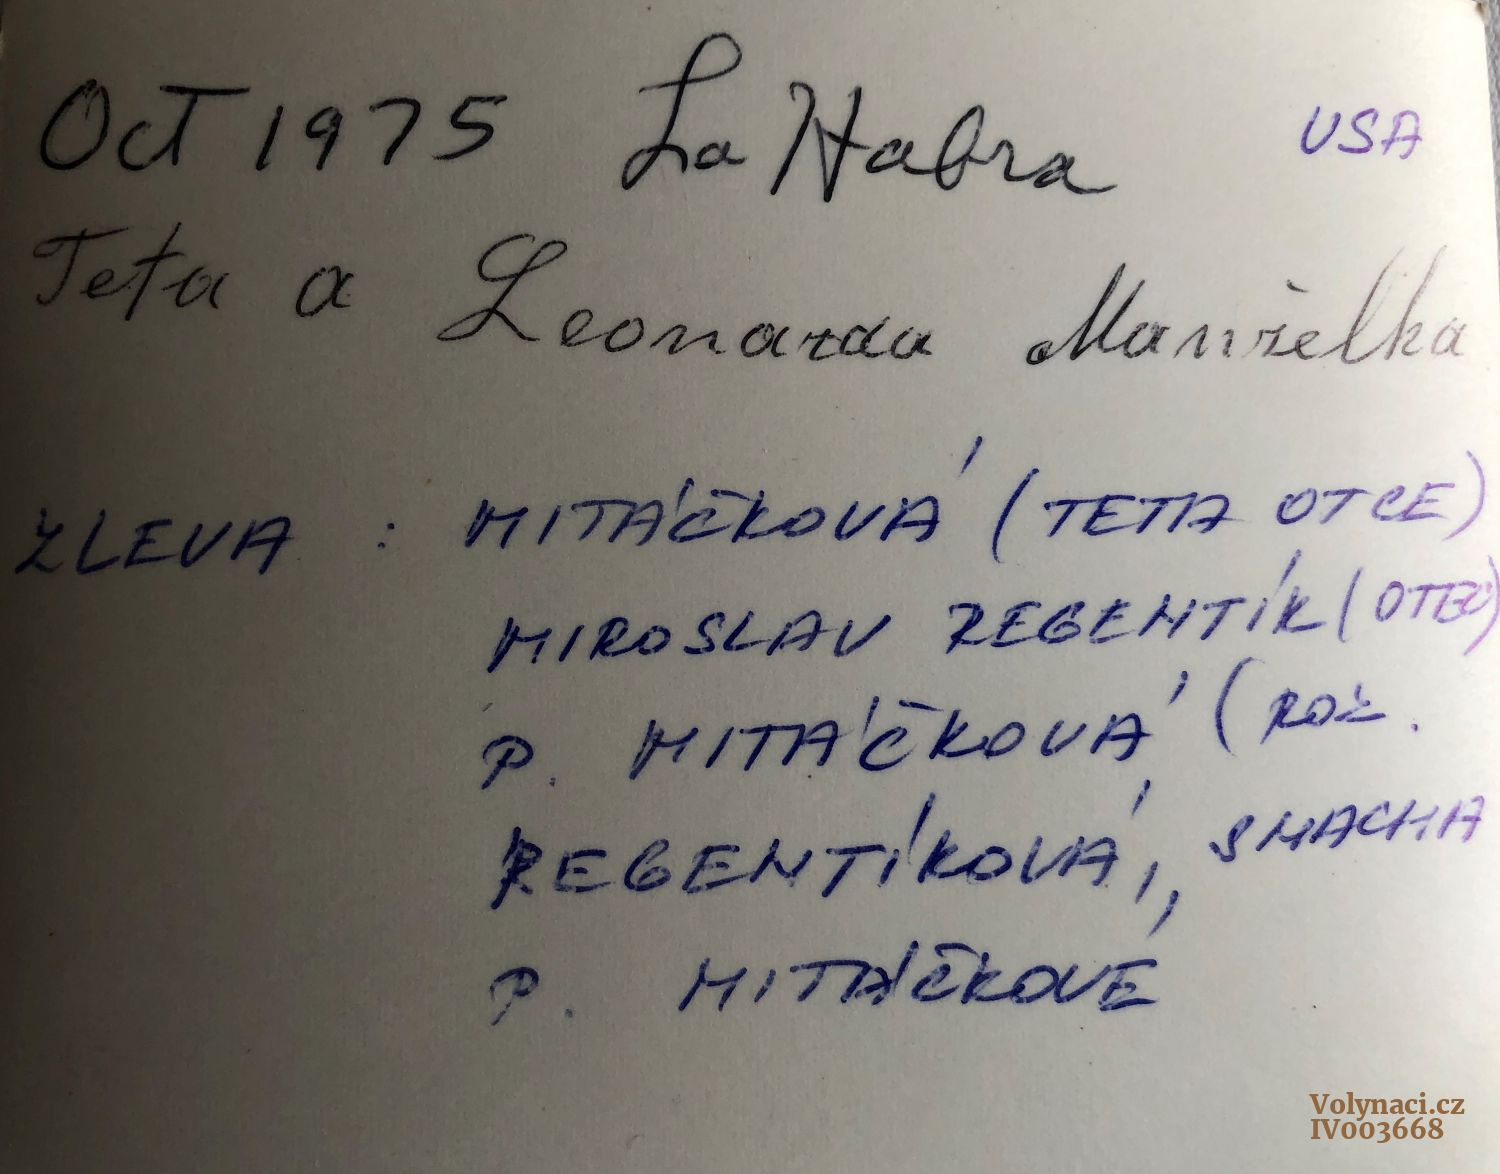 Oct 1975 La Habra USA
Teta a Leonarda Manželka
ZLEVA : MITÁČKOVÁ (TETA OTCE)
MIROSLAV REGENTÍK (OTEC)
P. MITÁČKOVÁ (ROZ.
REGENTÍKOVÁ, SNACHA
P. MITÁČKOVÉ
Volynaci.cz
IV003668